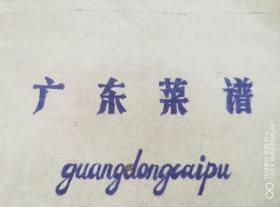 广东菜谱
guangdongcaipu